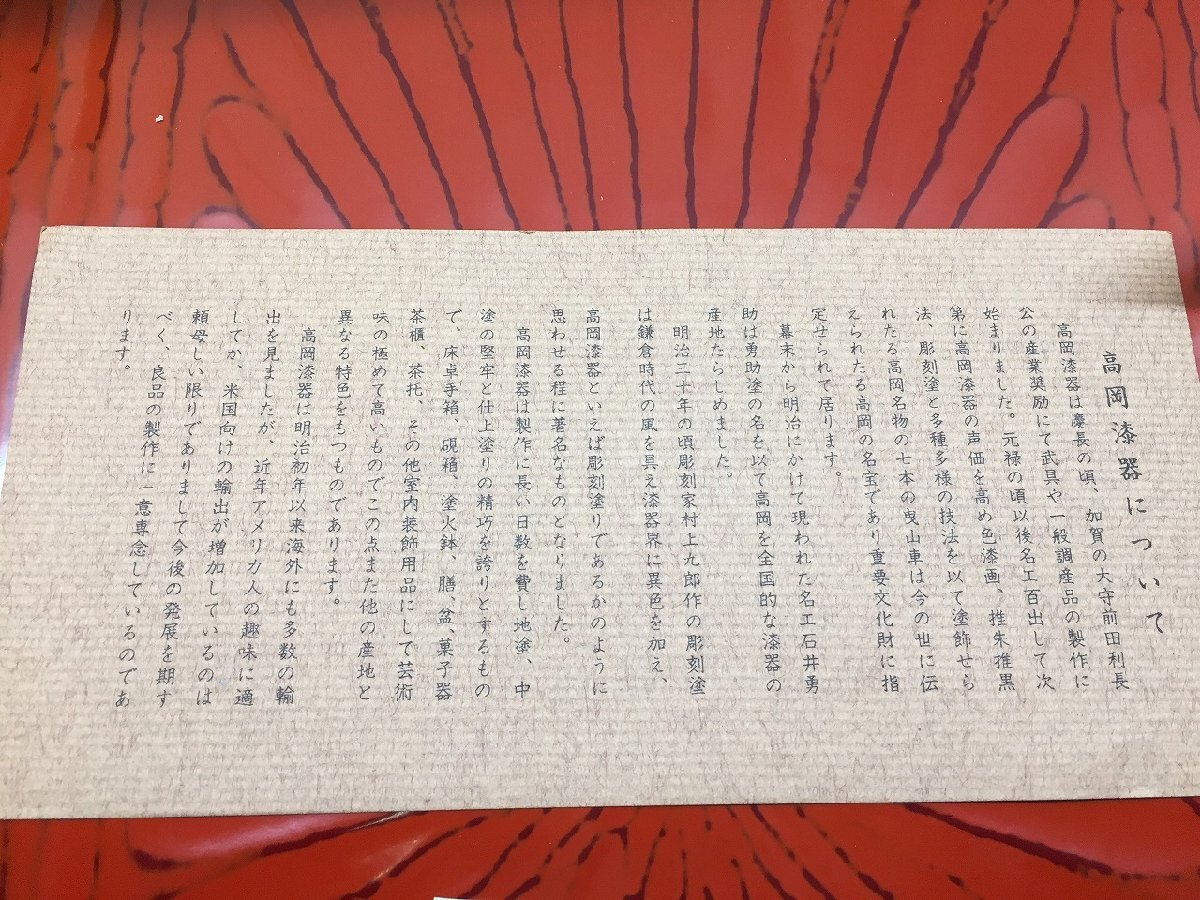 高岡漆器について
高岡漆器は慶長の頃、加賀の大守前田利長
公の産業奨励にて武具や一般調産品の製作に
始まりました。元禄の頃以後名工百出して次
第に高岡漆器の声価を高め色漆画、推朱推黒
法、彫刻塗と多種多様の技法を以て塗飾せら
れたる高岡名物の七本の曳山車は今の世に伝
えられたる高岡の名宝であり重要文化財に指
定せられて居ります。
幕末から明治にかけて現われた名工石井勇
助は勇助塗の名を以て高岡を全国的な漆器の
産地たらしめました。
明治三十年の頃彫刻家村上九郎作の彫刻塗
は鎌倉時代の風を具え漆器界に異色を加え、
高岡漆器といえば彫刻塗りであるかのように
思わせる程に著名なものとなりました。
高岡漆器は製作に長い日数を費し地塗、中
塗の堅牢と仕上塗りの精巧を誇りとするもの
で、床卓手箱、硯箱、塗火鉢、膳、盆、菓子器
茶櫃、茶托、その他室内装飾用品にして芸術
味の極めて高いものでこの点また他の産地と
異なる特色をもつものであります。
高岡漆器は明治初年以来海外にも多数の輸
出を見ましたが、近年アメリカ人の趣味に適
してか、米国向けの輸出が増加しているのは
頼母しい限りでありまして今後の発展を期す
べく、良品の製作に一意専念しているのであ
ります。